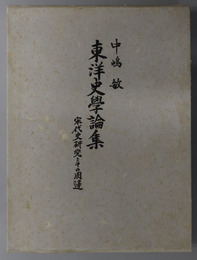 中嶋 敏
東洋史學論集
宋代史研究とその周邊